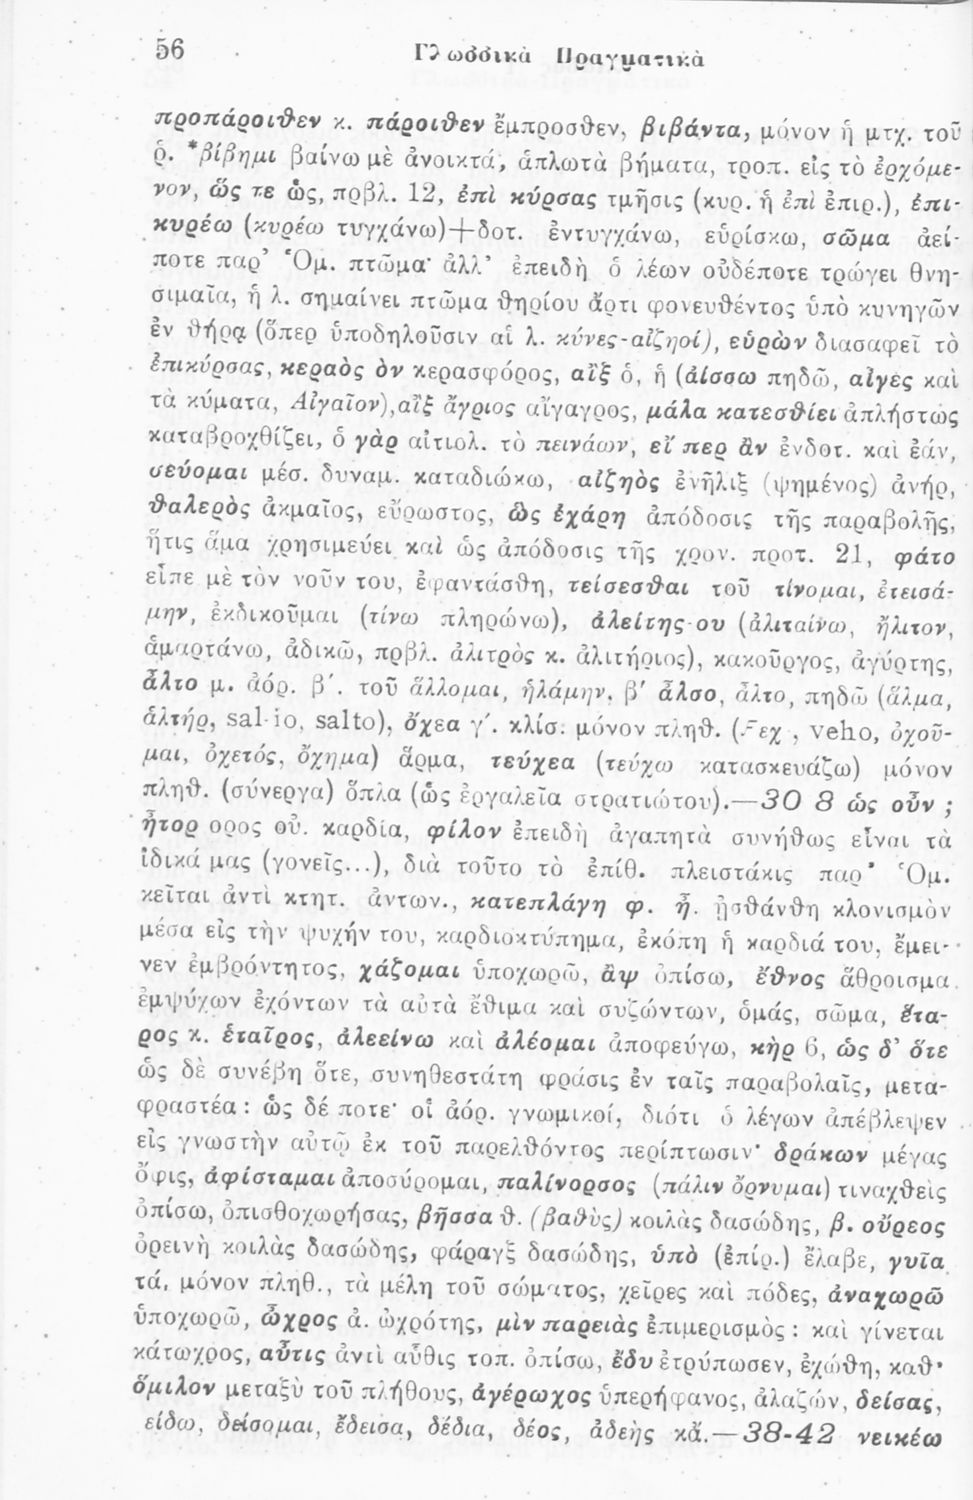 56
Γλωσσικὰ Πραγματικὰ
προπάροιθεν κ. πάροιθεν ἔμπροσθεν, βιβάντα, μόνον ἡ μτχ. τοῦ
ῥ. *βίβημι βαίνω μὲ ἀνοικτά, ἁπλωτὰ βήματα, τροπ. εἰς τὸ ἐρχόμε-
νον, ὥς τε ὡς, πρβλ. 12, ἐπὶ κύρσας τμῆσις (κυρ. ἡ ἐπὶ ἐπιρ.), ἐπι-
κυρέω (κυρέω τυγχάνω)+δοτ. ἐντυγχάνω, εὑρίσκω, σῶμα ἀεί-
ποτε παρ' Ὁμ. πτῶμα· ἀλλ' ἐπειδὴ ὁ λέων οὐδέποτε τρώγει θνη-
σιμαῖα, ἡ λ. σημαίνει πτῶμα θηρίου ἄρτι φονευθέντος ὑπὸ κυνηγῶν
ἐν θήρᾳ (ὅπερ ὑποδηλοῦσιν αἱ λ. κύνες-αἰζηοί), εὑρὼν διασαφεῖ τὸ
ἐπικύρσας, κεραὸς ὁν κερασφόρος, αἲξ ὁ, ἡ (ἀίσσω πηδῶ, αἶγες καὶ
τὰ κύματα, Αἰγαῖον), αἲξ ἄγριος αἴγαγρος, μάλα κατεσθίει ἀπλήστως
καταβροχθίζει, ὁ γὰρ αἰτιολ. τὸ πεινάων, εἴ περ ἂν ἐνδοτ. καὶ ἐάν,
σεύομαι μέσ. δυναμ. καταδιώκω, αἰζηὸς ἐνῆλιξ (ψημένος) ἀνήρ,
θαλερὸς ἀκμαῖος, εὔρωστος, ὣς ἐχάρη ἀπόδοσις τῆς παραβολῆς,
ἥτις ἅμα χρησιμεύει καὶ ὡς ἀπόδοσις τῆς χρον. προτ. 21, φάτο
εἶπε μὲ τὸν νοῦν του, ἐφαντάσθη, τείσεσθαι τοῦ τίνομαι, ἐτεισά-
μην, ἐκδικοῦμαι (τίνω πληρώνω), ἀλείτης-ου (ἀλιταίνω, ἤλιτον,
ἁμαρτάνω, ἀδικῶ, πρβλ. ἀλιτρὸς κ. ἀλιτήριος), κακοῦργος, ἀγύρτης,
ἆλτο μ. ἀόρ. β΄. τοῦ ἅλλομαι, ἡλάμην, β΄ ἆλσο, ἆλτο, πηδῶ (ἅλμα,
ἁλτήρ, sal-io, salto), ὄχεα γ΄. κλίσ. μόνον πληθ. (Ϝεχ-, veho, ὀχοῦ-
μαι, ὀχετός, ὄχημα) ἅρμα, τεύχεα (τεύχω κατασκευάζω) μόνον
πληθ. (σύνεργα) ὅπλα (ὡς ἐργαλεῖα στρατιώτου).—30 8 ὡς οὖν ;
ἦτορ ορος οὐ. καρδία, φίλον ἐπειδὴ ἀγαπητὰ συνήθως εἶναι τὰ
ἰδικά μας (γονεῖς...), διὰ τοῦτο τὸ ἐπίθ. πλειστάκις παρ' Ὁμ.
κεῖται ἀντὶ κτητ. ἀντων., κατεπλάγη φ. ἦ. ᾐσθάνθη κλονισμὸν
μέσα εἰς τὴν ψυχήν του, καρδιοκτύπημα, ἐκόπη ἡ καρδιά του, ἔμει-
νεν ἐμβρόντητος, χάζομαι ὑποχωρῶ, ἂψ ὀπίσω, ἔθνος ἄθροισμα
ἐμψύχων ἐχόντων τὰ αὐτὰ ἔθιμα καὶ συζώντων, ὁμάς, σῶμα, ἕτα-
ρος κ. ἑταῖρος, ἀλεείνω καὶ ἀλέομαι ἀποφεύγω, κὴρ 6, ὡς δ' ὅτε
ὡς δὲ συνέβη ὅτε, συνηθεστάτη φράσις ἐν ταῖς παραβολαῖς, μετα-
φραστέα : ὡς δέ ποτε· οἱ ἀόρ. γνωμικοί, διότι ὁ λέγων ἀπέβλεψεν
εἰς γνωστὴν αὐτῷ ἐκ τοῦ παρελθόντος περίπτωσιν· δράκων μέγας
ὄφις, ἀφίσταμαι ἀποσύρομαι, παλίνορσος (πάλιν ὄρνυμαι) τιναχθεὶς
ὀπίσω, ὀπισθοχωρήσας, βῆσσα θ. (βαθὺς) κοιλὰς δασώδης, β. οὔρεος
ὀρεινὴ κοιλὰς δασώδης, φάραγξ δασώδης, ὑπὸ (ἐπίρ.) ἔλαβε, γυῖα
τά, μόνον πληθ., τὰ μέλη τοῦ σώματος, χεῖρες καὶ πόδες, ἀναχωρῶ
ὑποχωρῶ, ὦχρος ἀ. ὠχρότης, μὶν παρειὰς ἐπιμερισμὸς : καὶ γίνεται
κάτωχρος, αὖτις ἀντὶ αὖθις τοπ. ὀπίσω, ἔδυ ἐτρύπωσεν, ἐχώθη, καθ'
ὅμιλον μεταξὺ τοῦ πλήθους, ἀγέρωχος ὑπερήφανος, ἀλαζών, δείσας,
είδω, δείσομαι, ἔδεισα, δέδια, δέος, ἀδεὴς κἄ.—38-42 νεικέω